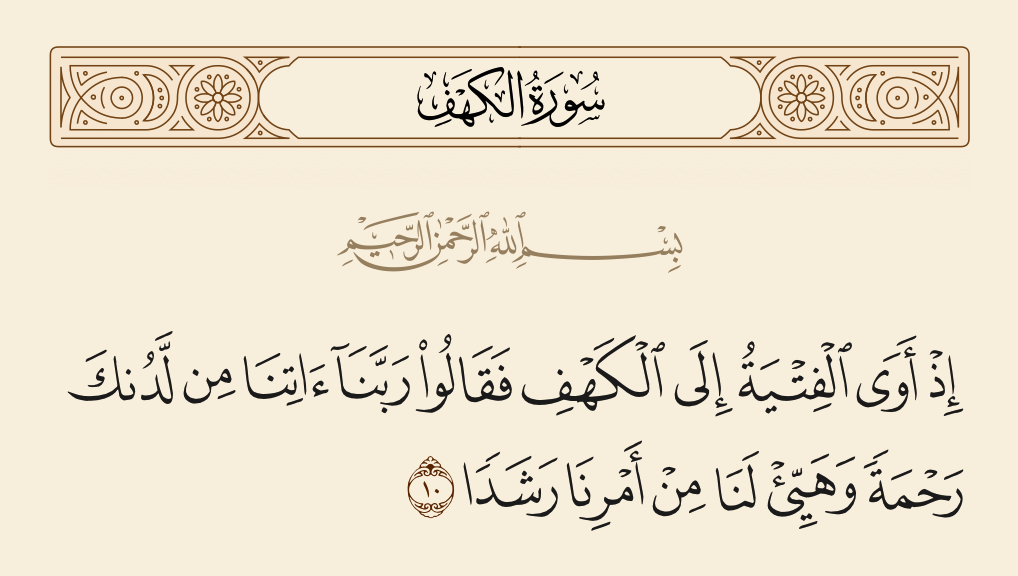 سُورَةُ الكَهْفِ
بِسْمِ ٱللَّهِ ٱلرَّحْمَٰنِ ٱلرَّحِيمِ
إِذْ أَوَى ٱلْفِتْيَةُ إِلَى ٱلْكَهْفِ فَقَالُوا۟ رَبَّنَآ ءَاتِنَا مِن لَّدُنكَ
رَحْمَةً وَهَيِّئْ لَنَا مِنْ أَمْرِنَا رَشَدًا ١٠